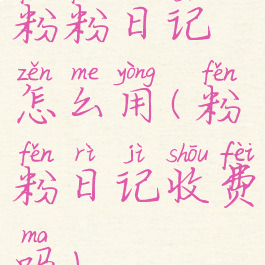 粉粉日记
zěn me yòng fěn
怎么用(粉
fěn rì jì shōu fèi
粉日记收费
ma
吗)